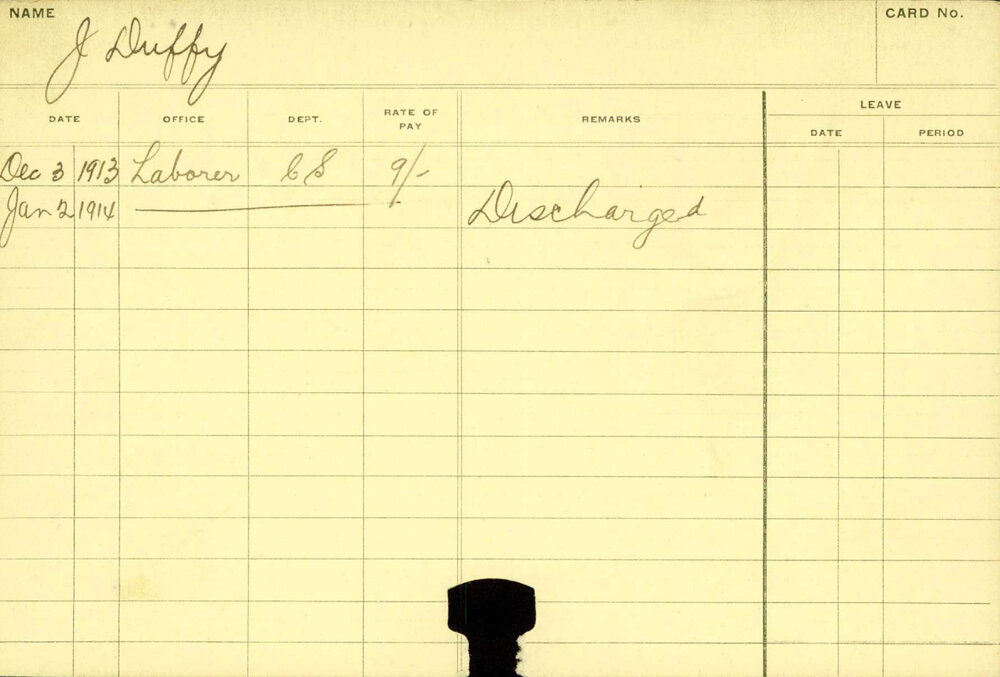 NAME
J Duffy
CARD No.
DATE OFFICE DEPT. RATE OF PAY REMARKS LEAVE
DATE PERIOD
Dec 3 1913 Laborer C S 9/-
Jan 2 1914 Discharged